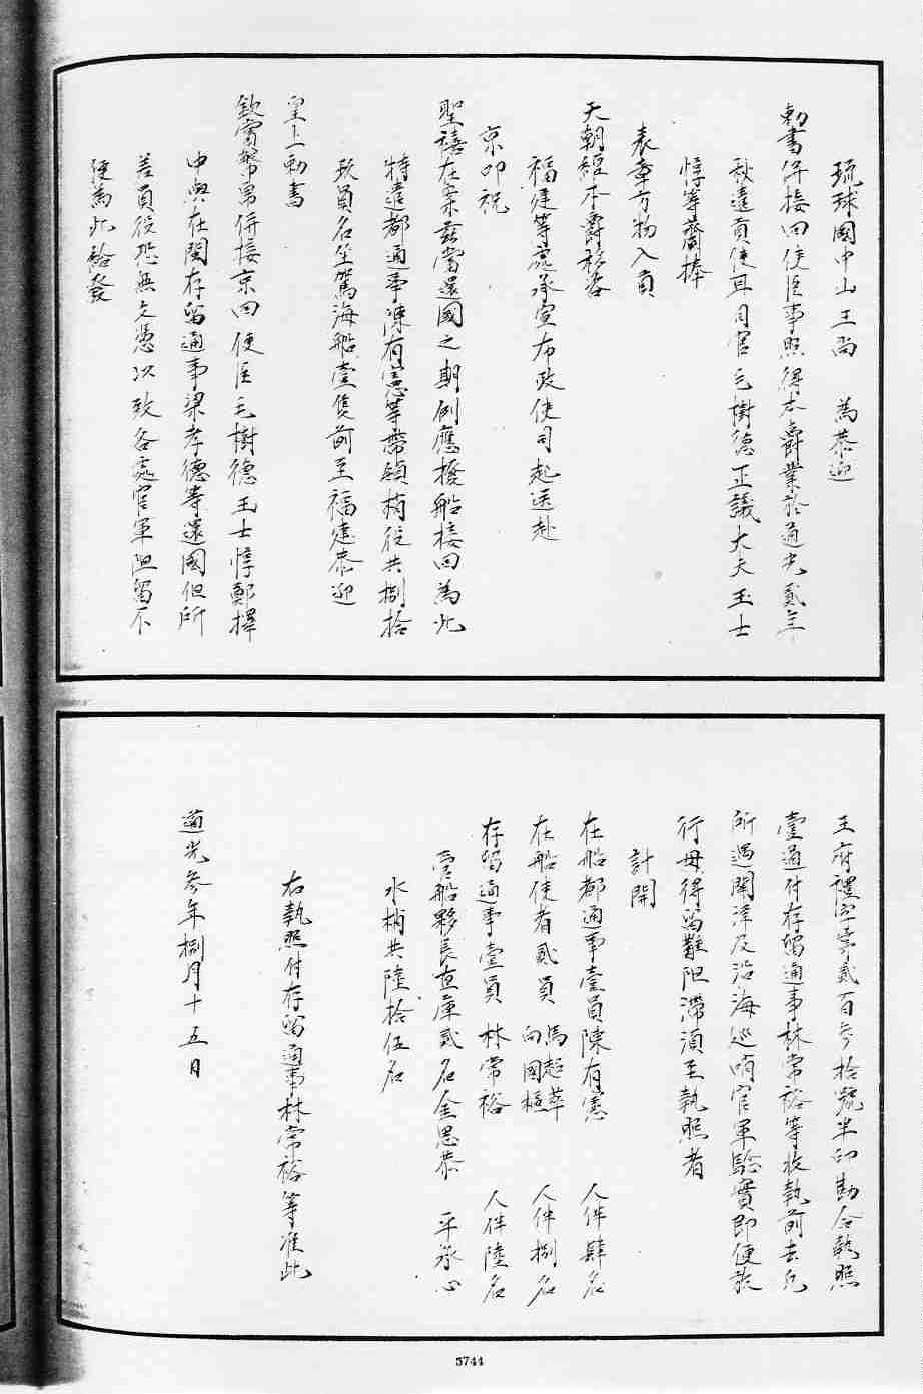 琉球國中山王尚　為恭迎
勅書併接回使臣事照得本爵業於道光貳年
秋遣貢使耳目官毛樹德正議大夫王士
惇等齎捧
表章方物入貢
天朝經本爵移咨
福建等處承宣布政使司起送赴
京叩祝
聖禧在案茲當還國之期例應撥船接回為此
特遣都通事陳有憲等帶領梢役共捌拾
玖員名坐駕海船壹隻前至福建恭迎
皇上勅書
欽賞幣帛併接京回使臣毛樹德王士惇鄭擇
中與在閩存留通事梁孝德等還國但所
差員役恐無文憑以致各處官軍阻留不
便為此給發
王府禮字第貳百參拾號半印勘合執照
壹通付存留通事林常裕等收執前去凡
所遇關津及沿海巡哨官軍驗實即便放
行毋得留難阻滯須至執照者
計開
在船都通事壹員陳有憲　人伴肆名
在船使者貳員　馬超群　向國樞　人伴捌名
存留通事壹員　林常裕　人伴陸名
管船夥長直庫貳名金思恭　平承心
水梢共陸拾伍名
右執照付存留通事林常裕等准此
道光參年捌月十五日
3744